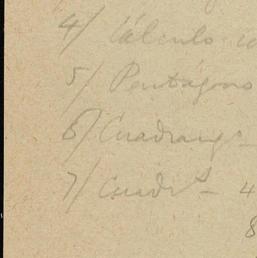 4/ Cálculo
5/ Pentágono
6/ Cuadrang-
7/ Cuadr^s- 4
8